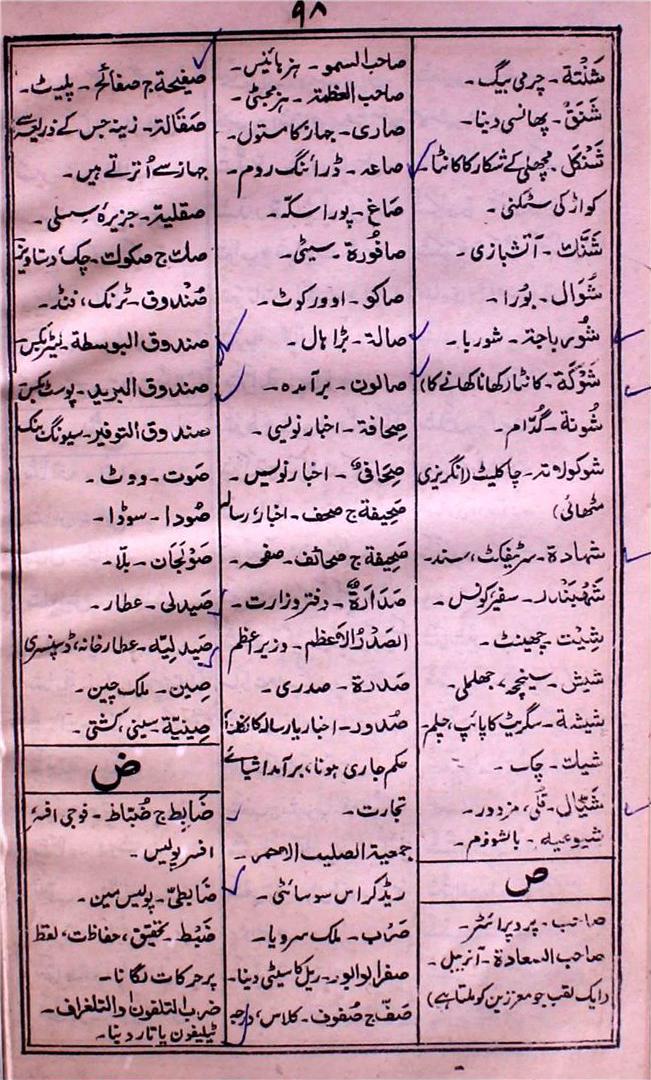 ۹۸
شَنْتة۔ چرمی بیگ۔
شَنَق۔ پھانسی دینا۔
شَنْکَل۔ مچھلی کے شکار کا کانٹا۔
کواڑ کی سٹکنی۔
شَنَّك۔ آتشبازی۔
شُوَال۔ بورا۔
شُورباجة۔ شوربا۔
شَوْکَة۔ کانٹا (کھانا کھانے کا)
شُونة۔ گدام۔
شوکولاتہ۔ چاکلیٹ (انگریزی
مٹھائی)
شہادة۔ سرٹیفکٹ، سند۔
شَہْبَنْدر۔ سفیر کونسل۔
شِیْت۔ چھینٹ۔
شیش۔ سینچہ، جھلملی۔
شیشة۔ سگریٹ کا پائپ، چلم۔
شیك۔ چک۔
شَیّال۔ قلی، مزدور۔
شیوعیہ۔ بالشوزم۔
ص
صاحب۔ پروپرائٹر۔
صاحب السعادة۔ آنریبل۔
(ایک لقب جو معززین کو ملتا ہے)
صاحب السمو۔ ہز ہائینس۔
صاحب العظمة۔ ہز مجسٹی۔
صاری۔ جہاز کا مستول۔
صاعہ۔ ڈرائنگ روم۔
صَاغ۔ پورا سکہ۔
صافُورة۔ سیٹی۔
صاکو۔ اوورکوٹ۔
صالة۔ بڑا ہال۔
صالون۔ برآمدہ۔
صِحافة۔ اخبار نویسی۔
صِحَافی۔ اخبار نویس۔
صَحِیفة ج صحف۔ اخبار، رسالہ
صَحِیفة ج صحائف۔ صفحہ۔
صَدَارَة۔ دفتر وزارت۔
الصَدْرُ الاَعظم۔ وزیر اعظم
صَدرة۔ صدری۔
صُدور۔ اخبار یا رسالہ کا نکلنا،
حکم جاری ہونا، برآمد اشیائے
تجارت۔
جمعیة الصلیب الاحمر۔
ریڈ کراس سوسائٹی۔
صَرْب۔ ملک سرویا۔
صفر الوابور۔ ریل کا سیٹی دینا۔
صَفّ ج صُفوف۔ کلاس، درجہ
صَفِیحة ج صفائح۔ پلیٹ۔
صَقالة۔ زینہ جس کے ذریعہ سے
جہاز سے اُترتے ہیں۔
صقلیة۔ جزیرہ سسلی۔
صك ج صکوك۔ چک، دستاویز
صُنْدوق۔ ٹرنک، فنڈ۔
صندوق البوسطة۔ لیٹربکس۔
صندوق البرید۔ پوسٹ بکس
صندوق التوفیر۔ سیونگ بنک
صَوت۔ ووٹ۔
صُودا۔ سوڈا۔
صَوْلجَان۔ بلّا۔
صَیدلی۔ عطار۔
صَیدلیّة۔ عطار خانہ، ڈسپنسری
صِین۔ ملک چین۔
صِینیّة سینی، کشتی۔
ض
ضَابِط ج ضُبّاط۔ فوجی افسر،
افسر پولیس۔
ضَابِطیّ۔ پولیس مین۔
ضَبْط۔ تحقیق، حفاظت، لفظ
پر حرکات لگانا۔
ضرب التلفون والتلغراف۔
ٹیلیفون یا تار دینا۔